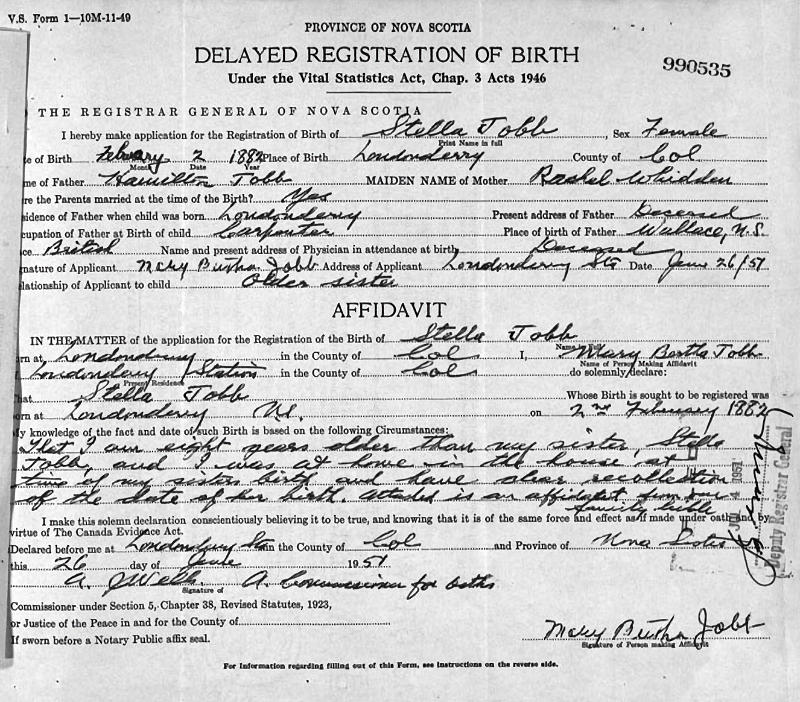 V.S. Form 1—10M-11-49
PROVINCE OF NOVA SCOTIA
DELAYED REGISTRATION OF BIRTH
990535
Under the Vital Statistics Act, Chap. 3 Acts 1946
THE REGISTRAR GENERAL OF NOVA SCOTIA
I hereby make application for the Registration of Birth of Stella Jobb, Sex Female
Print Name in full
te of Birth February 2 1882 Place of Birth Londonderry County of Col
Month Date Year
me of Father Hamilton Jobb MAIDEN NAME of Mother Rachel Whidden
re the Parents married at the time of the Birth? Yes
sidence of Father when child was born Londonderry Present address of Father Deceased
cupation of Father at Birth of child Carpenter Place of birth of Father Wallace, N.S.
ce British Name and present address of Physician in attendance at birth Deceased
gnature of Applicant Mary Bertha Jobb Address of Applicant Londonderry Sta Date June 26/51
elationship of Applicant to child older sister
AFFIDAVIT
IN THE MATTER of the application for the Registration of the Birth of Stella Jobb
Name in Full
rn at Londonderry in the County of Col I, Mary Bertha Jobb
Name of Person Making Affidavit
Londonderry Station in the County of Col do solemnly declare:
Present Residence
hat Stella Jobb Whose Birth is sought to be registered was
orn at Londonderry NS. on 2nd February 1882
My knowledge of the fact and date of such Birth is based on the following Circumstances:
That I am eight years older than my sister, Stella
Jobb, and I was at home in the house at
time of my sisters birth and have clear recollection
of the date of her birth. Attached is an affidavit from our
family bible
I make this solemn declaration conscientiously believing it to be true, and knowing that it is of the same force and effect as if made under oath and by
virtue of The Canada Evidence Act.
Declared before me at Londonderry Sta in the County of Col and Province of Nova Scotia
this 26 day of June 1951
A. J Wells. A Commissioner for Oaths
Signature of
Commissioner under Section 5, Chapter 38, Revised Statutes, 1923,
or Justice of the Peace in and for the County of
If sworn before a Notary Public affix seal.
Mary Bertha Jobb
Signature of Person making Affidavit
For Information regarding filling out of this Form, see instructions on the reverse side.
JUL 4 1951
Deputy Registrar General